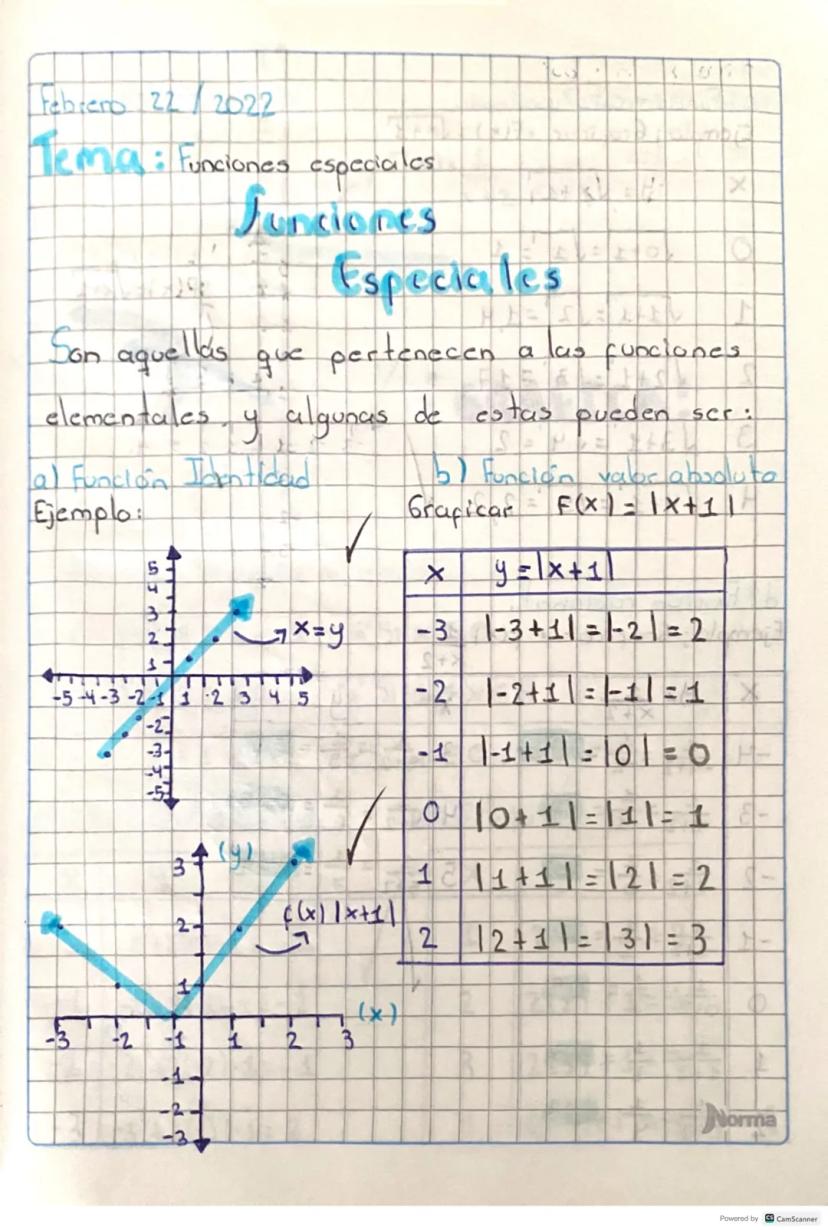 Febrero 22 / 2022
Tema: Funciones especiales
Funciones
Especiales
Son aquellas que pertenecen a las funciones
elementales, y algunas de estas pueden ser:
a) Función Identidad
Ejemplo:
5
4
3
2
1
x=y
-5 -4 -3 -2 -1 1 2 3 4 5
-2
-3
-4
-5
b) Función valor absoluto
Graficar F(x) = |x+1|
x y = |x+1|
-3 |-3+1| = |-2| = 2
-2 |-2+1| = |-1| = 1
-1 |-1+1| = |0| = 0
0 |0+1| = |1| = 1
1 |1+1| = |2| = 2
2 |2+1| = |3| = 3
(y)
3
f(x) |x+1|
2
1
(x)
-3 -2 -1 1 2 3
-1
-2
-3
Norma
Powered by CS CamScanner